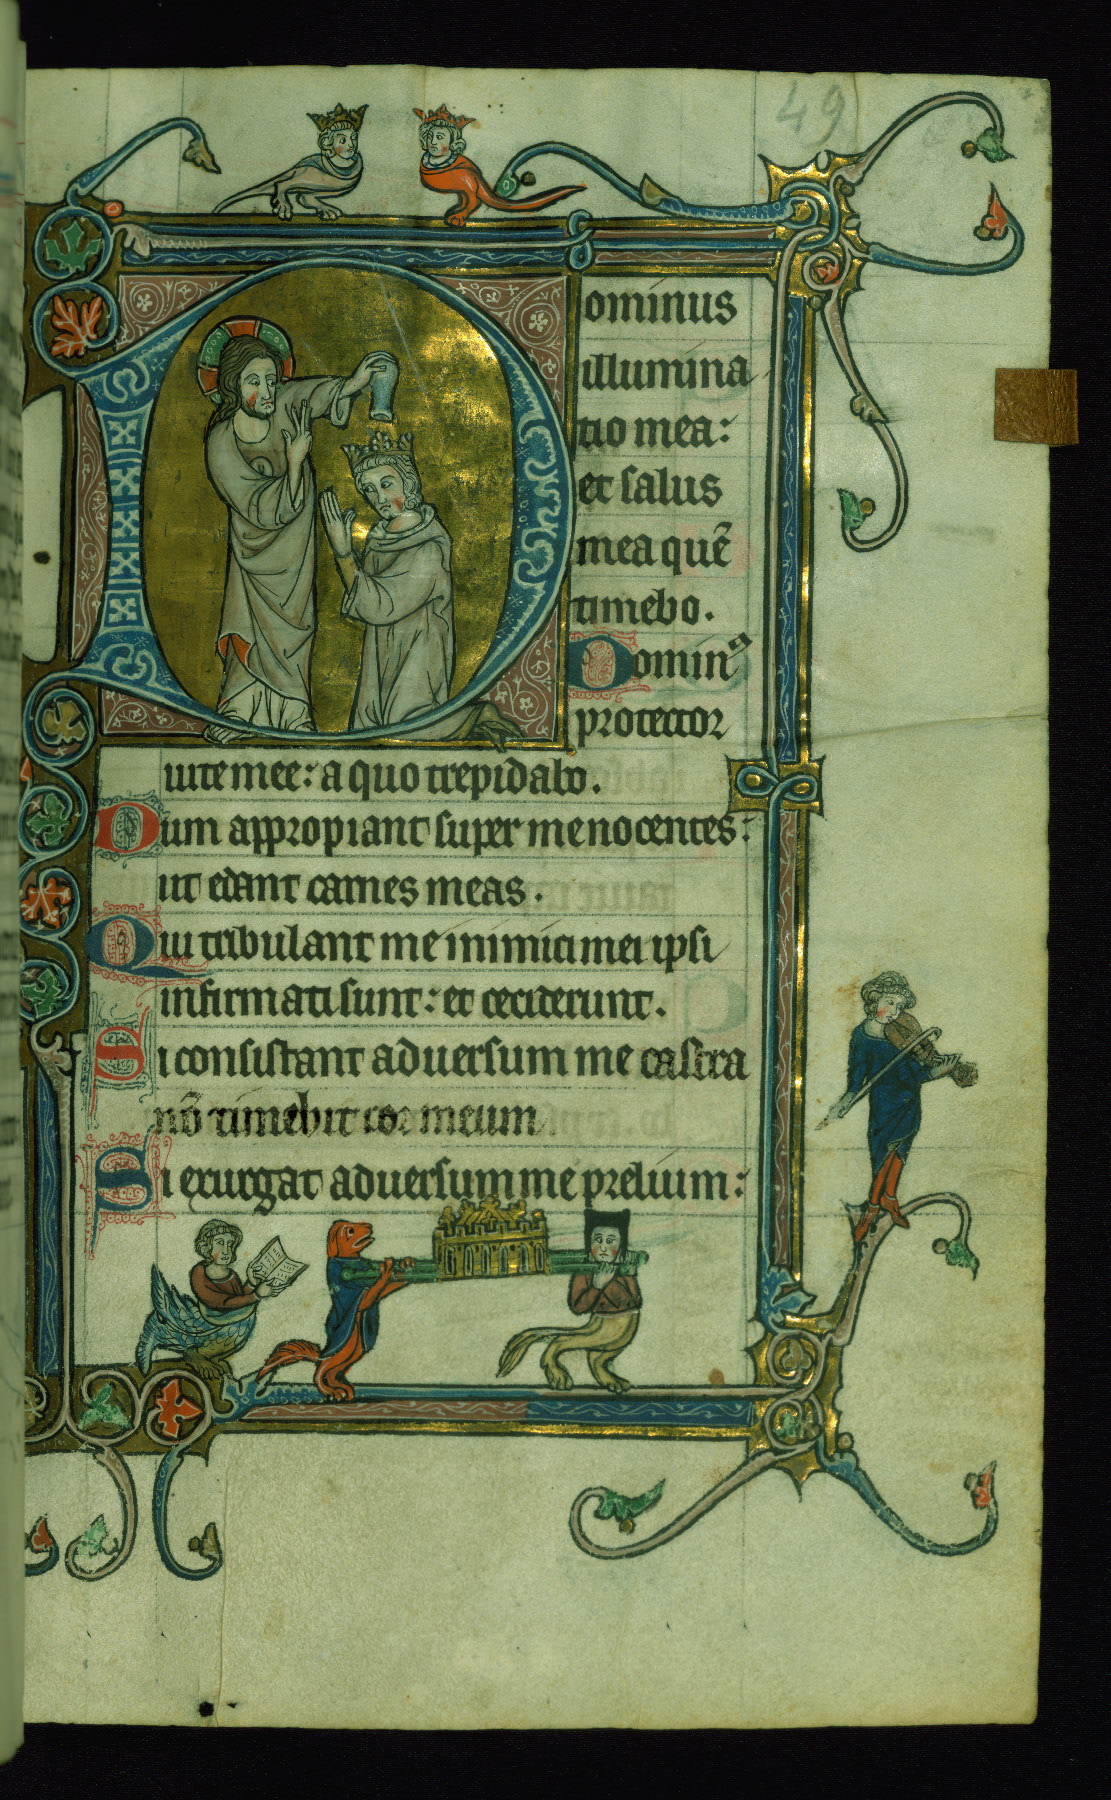 49
Dominus
illumina
tio mea:
et salus
mea quē
timebo.
Dominꝰ
protector
uite mee: a quo trepidabo.
Dum appropiant super me nocentes:
ut edant carnes meas.
Qui tribulant me inimici mei ipsi
infirmati sunt: et ceciderunt.
Si consistant aduersum me castra
nō timebit cor meum
Si exurgat aduersum me prelium: